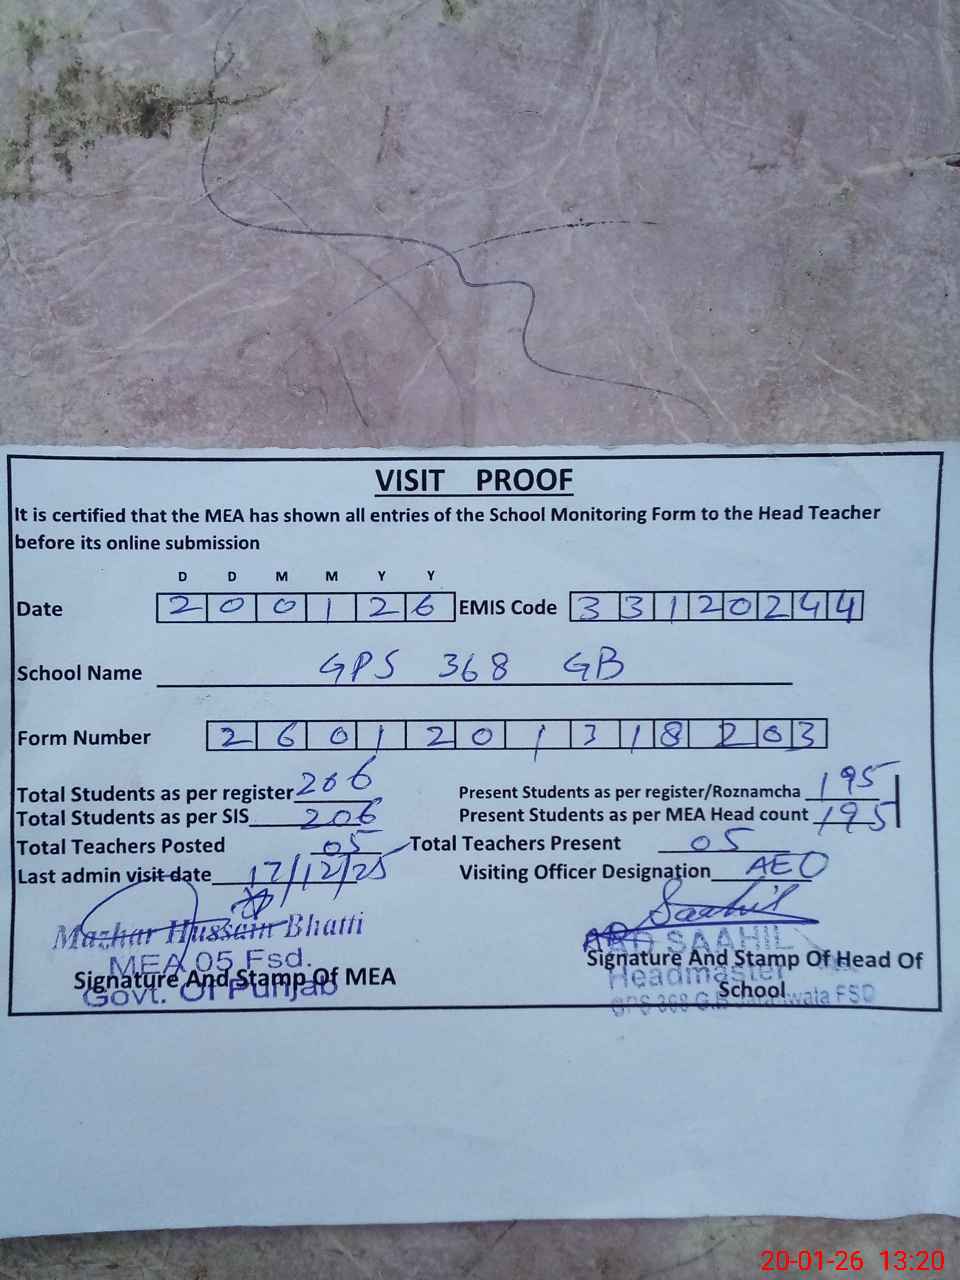 VISIT PROOF
It is certified that the MEA has shown all entries of the School Monitoring Form to the Head Teacher
before its online submission
D D M M Y Y
Date 2 0 0 1 2 6 EMIS Code 3 3 1 2 0 2 4 4
School Name GPS 368 GB
Form Number 2 6 0 1 2 0 1 3 1 8 2 0 3
Total Students as per register 206 Present Students as per register/Roznamcha 195
Total Students as per SIS 206 Present Students as per MEA Head count 195
Total Teachers Posted 05 Total Teachers Present 05
Last admin visit date 17/12/25 Visiting Officer Designation AEO
Saahil
Mazhar Hussain Bhatti
MEA 05 Fsd.
Govt. Of Punjab
Signature And Stamp Of MEA
SAAHIL
Headmaster
GPS 368 G.B FSD
Signature And Stamp Of Head Of
School
20-01-26 13:20